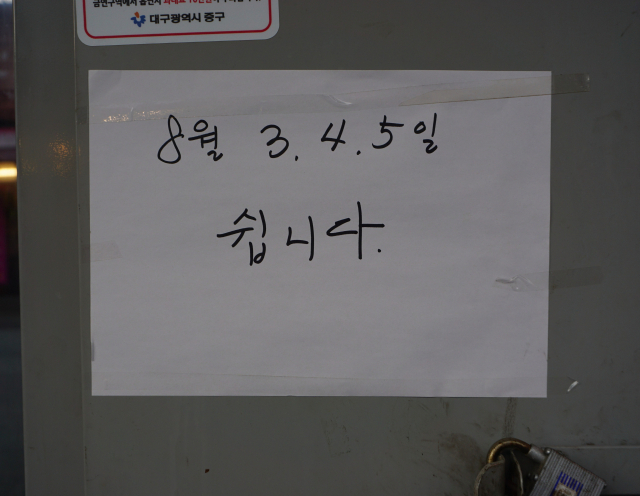 대구광역시 중구
8월 3. 4. 5일
쉽니다.